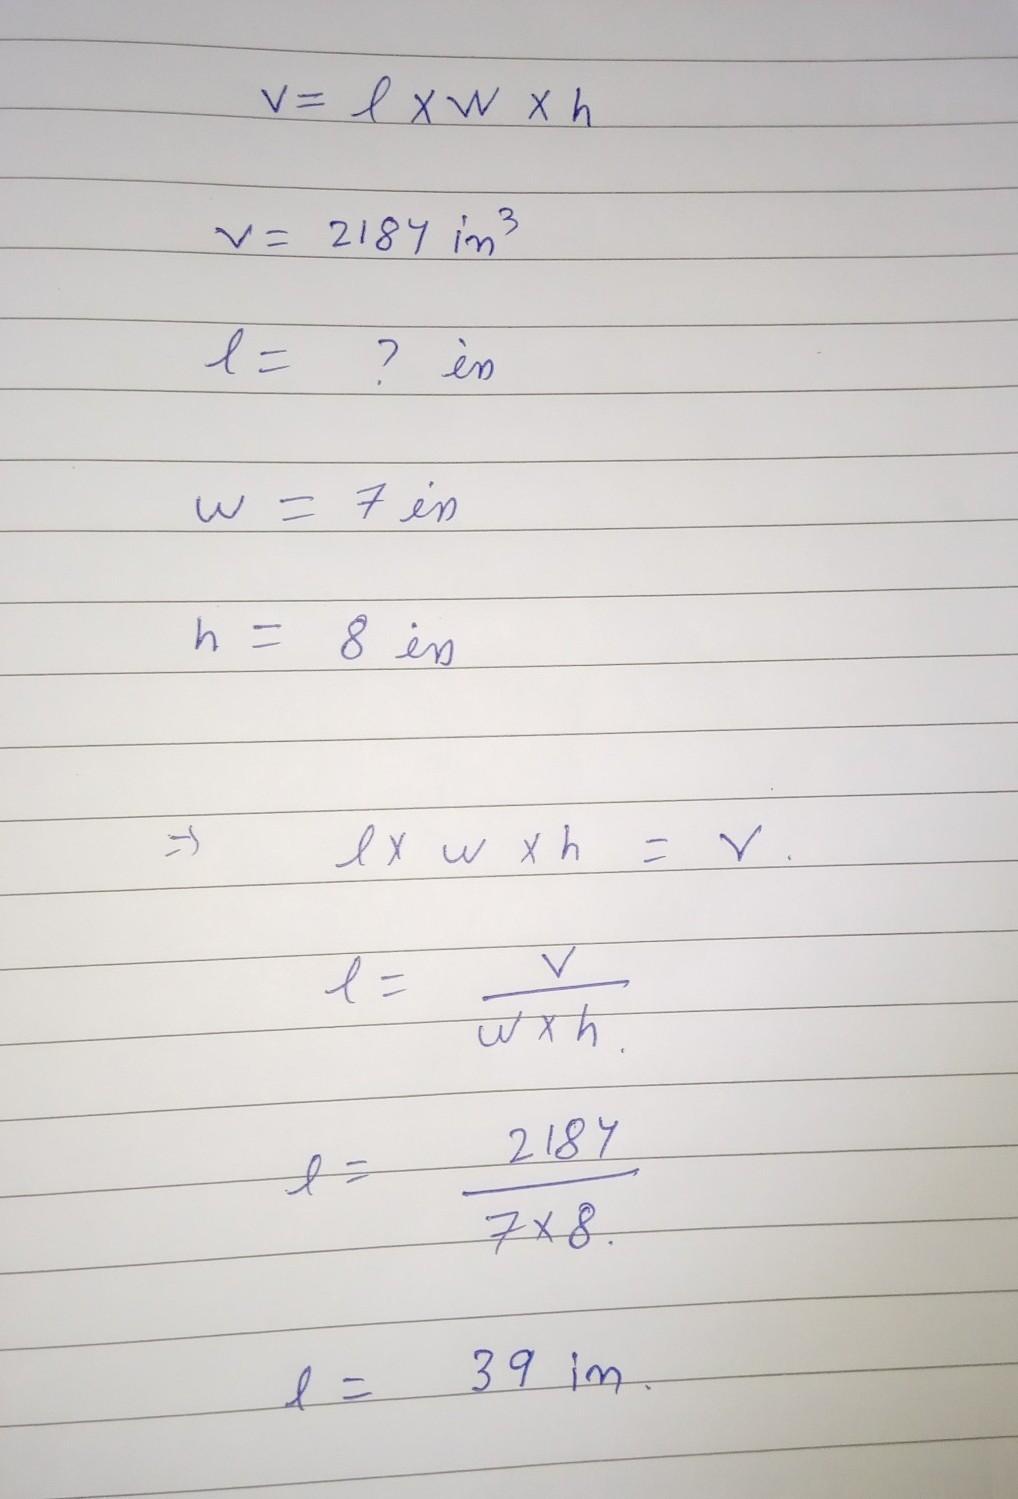 v = l x w x h
v = 2184 in³
l = ? in
w = 7 in
h = 8 in
⇒ l x w x h = v.
l = v / w x h.
l = 2184 / 7 x 8.
l = 39 in.